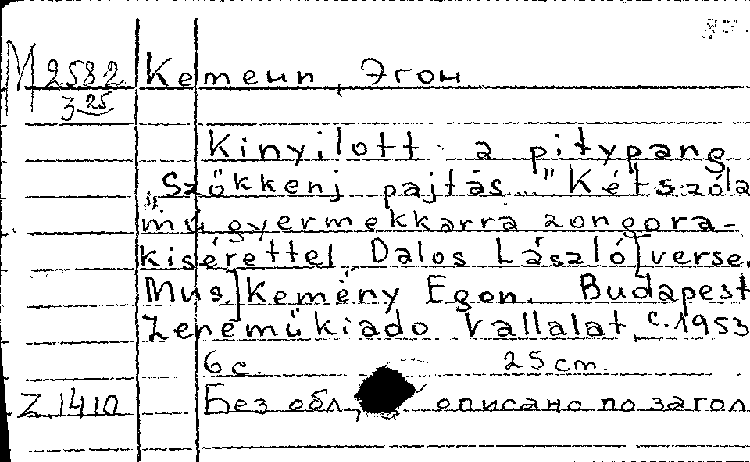 M 2582 Кемени, Эгон
3 25
Kinyilott a pitypang
„Szökkenj pajtás..." Kétszóla
mú gyermekkarra zongora-
kisérettel Dalos László] verse.
Mus.] Kemény Egon. Budapest
Zeneműkiado Vallalat c.1953
6 c. 25 cm.
Z 1410 Без обл, описано по загол